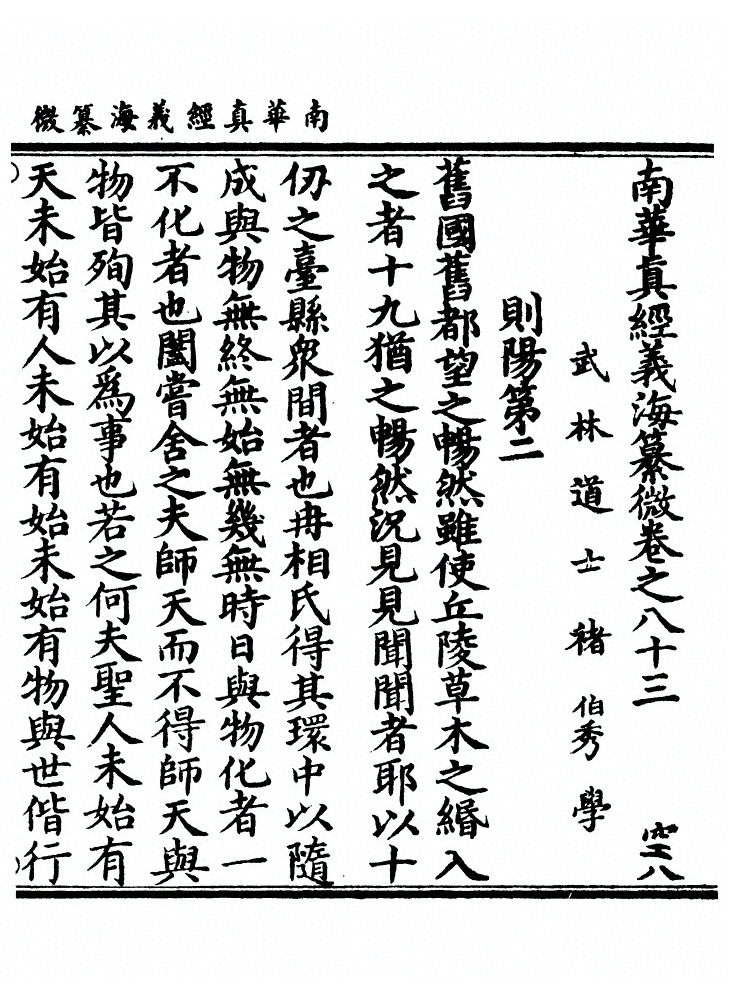 南華真經義海纂微
南華真經義海纂微卷之八十三
武林道士褚伯秀學
則陽第二
舊國舊都望之暢然雖使丘陵草木之緡入
之者十九猶之暢然況見見聞聞者耶以十
仞之臺縣眾間者也冉相氏得其環中以隨
成與物無終無始無幾無時日與物化者一
不化者也闔嘗舍之夫師天而不得師天與
物皆殉其以為事也若之何夫聖人未始有
天未始有人未始有始未始有物與世偕行